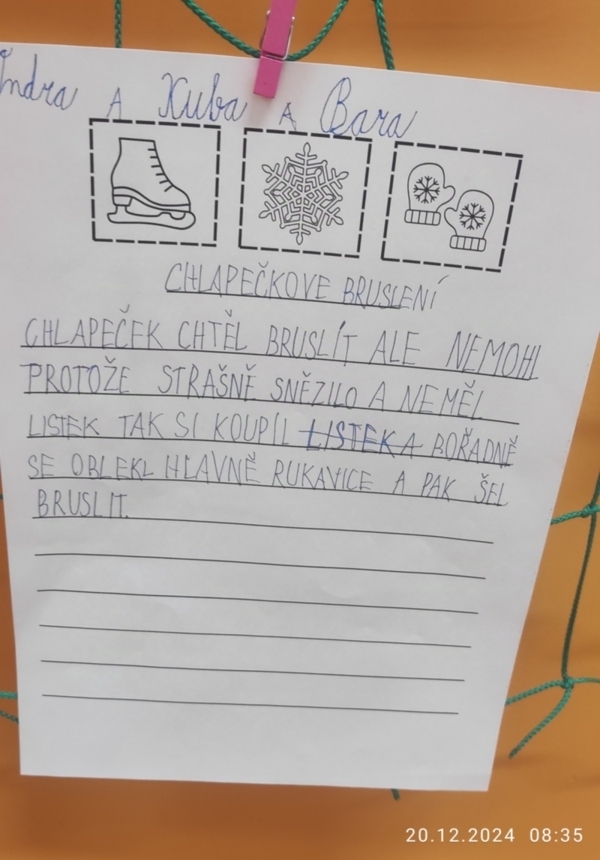 Indra A Kuba A Bara
CHLAPEČKOVE BRUSLENÍ
CHLAPEČEK CHTĚL BRUSLÍT ALE NEMOHL
PROTOŽE STRAŠNĚ SNĚZILO A NEMĚL
LISTEK TAK SI KOUPIL LISTEK A BOŘADNĚ
SE OBLEKL HLAVNĚ RUKAVICE A PAK ŠEL
BRUSLIT.
20.12.2024 08:35